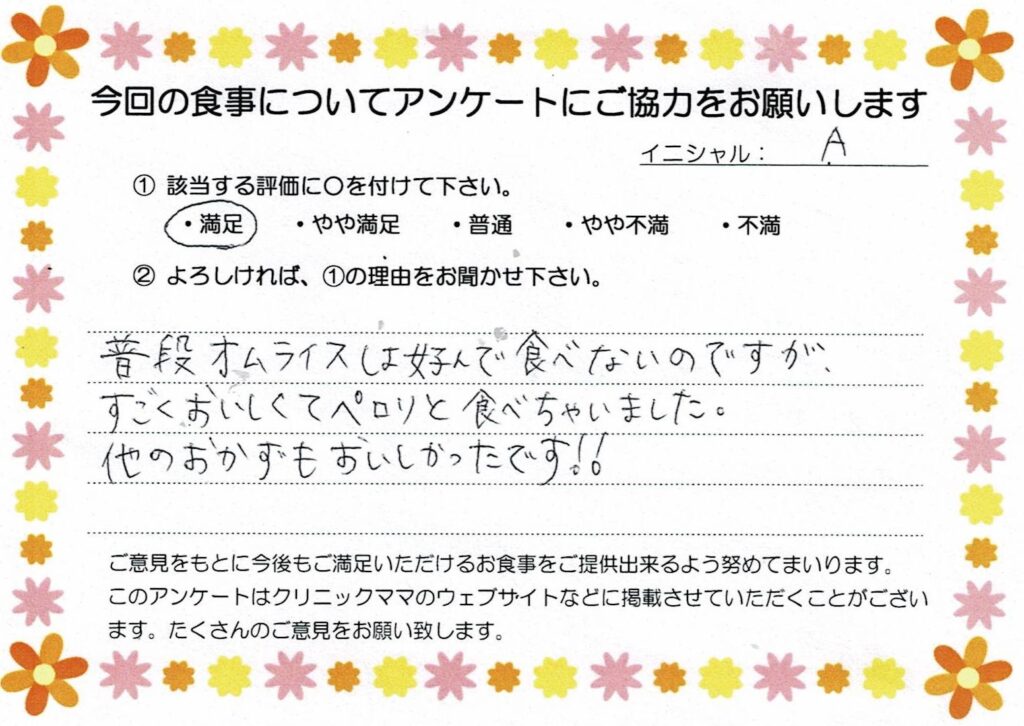 今回の食事についてアンケートにご協力をお願いします
イニシャル： A
① 該当する評価に〇を付けて下さい。
・満足 ・やや満足 ・普通 ・やや不満 ・不満
② よろしければ、①の理由をお聞かせ下さい。
普段オムライスは好んで食べないのですが、
すごくおいしくてペロリと食べちゃいました。
他のおかずもおいしかったです!!
ご意見をもとに今後もご満足いただけるお食事をご提供出来るよう努めてまいります。
このアンケートはクリニックママのウェブサイトなどに掲載させていただくことがござい
ます。たくさんのご意見をお願い致します。